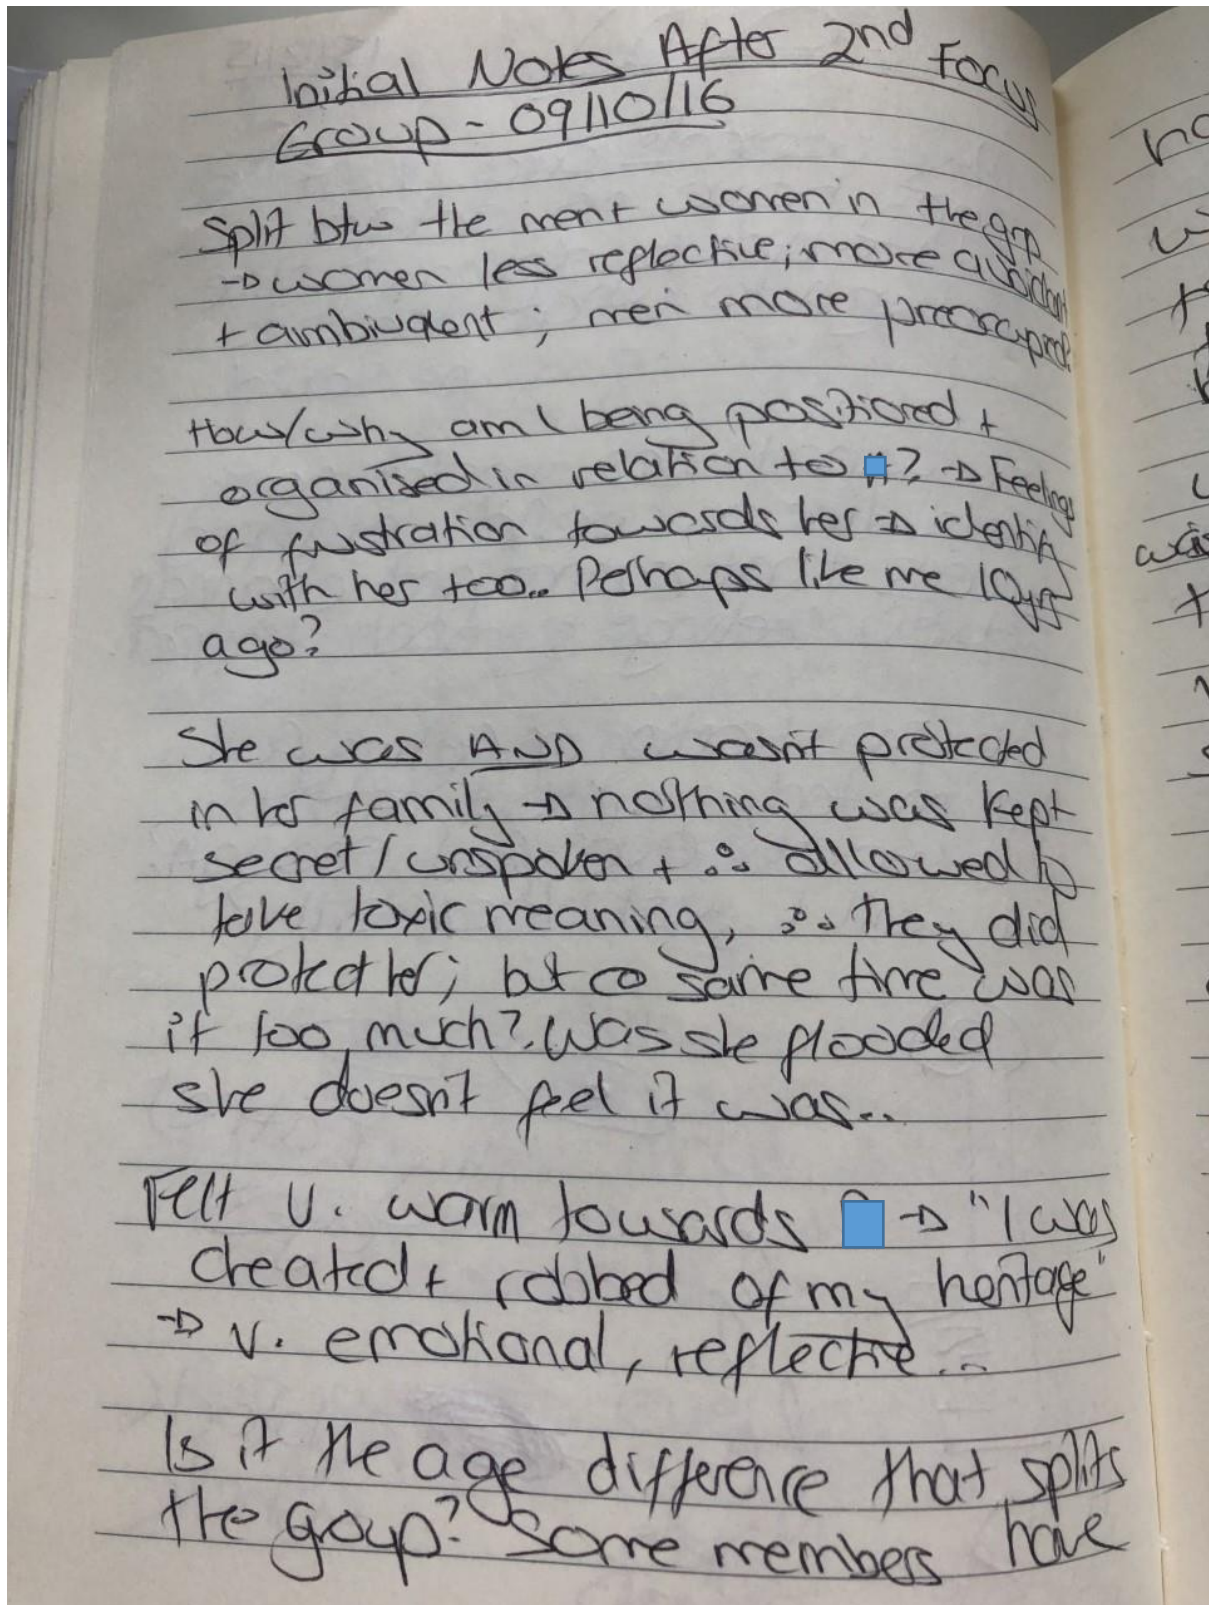 Initial Notes After 2nd Focus
Group - 09/10/16
Split btw the men + women in the grp
→ women less reflective; more avoidant
+ ambivalent; men more preoccupied.
How/why am I being positioned +
organised in relation to ? → Feelings
of frustration towards her → identify
with her too.. Perhaps like me 10yrs
ago?
She was AND wasn't protected
in her family → nothing was kept
secret/unspoken + ∴ allowed to
take toxic meaning, ∴ they did
protect her; but @ same time was
it too much? Was she flooded
she doesn't feel it was..
Felt v. warm towards → "I was
cheated + robbed of my heritage"
→ v. emotional, reflective...
Is it the age difference that splits
the group? Some members have